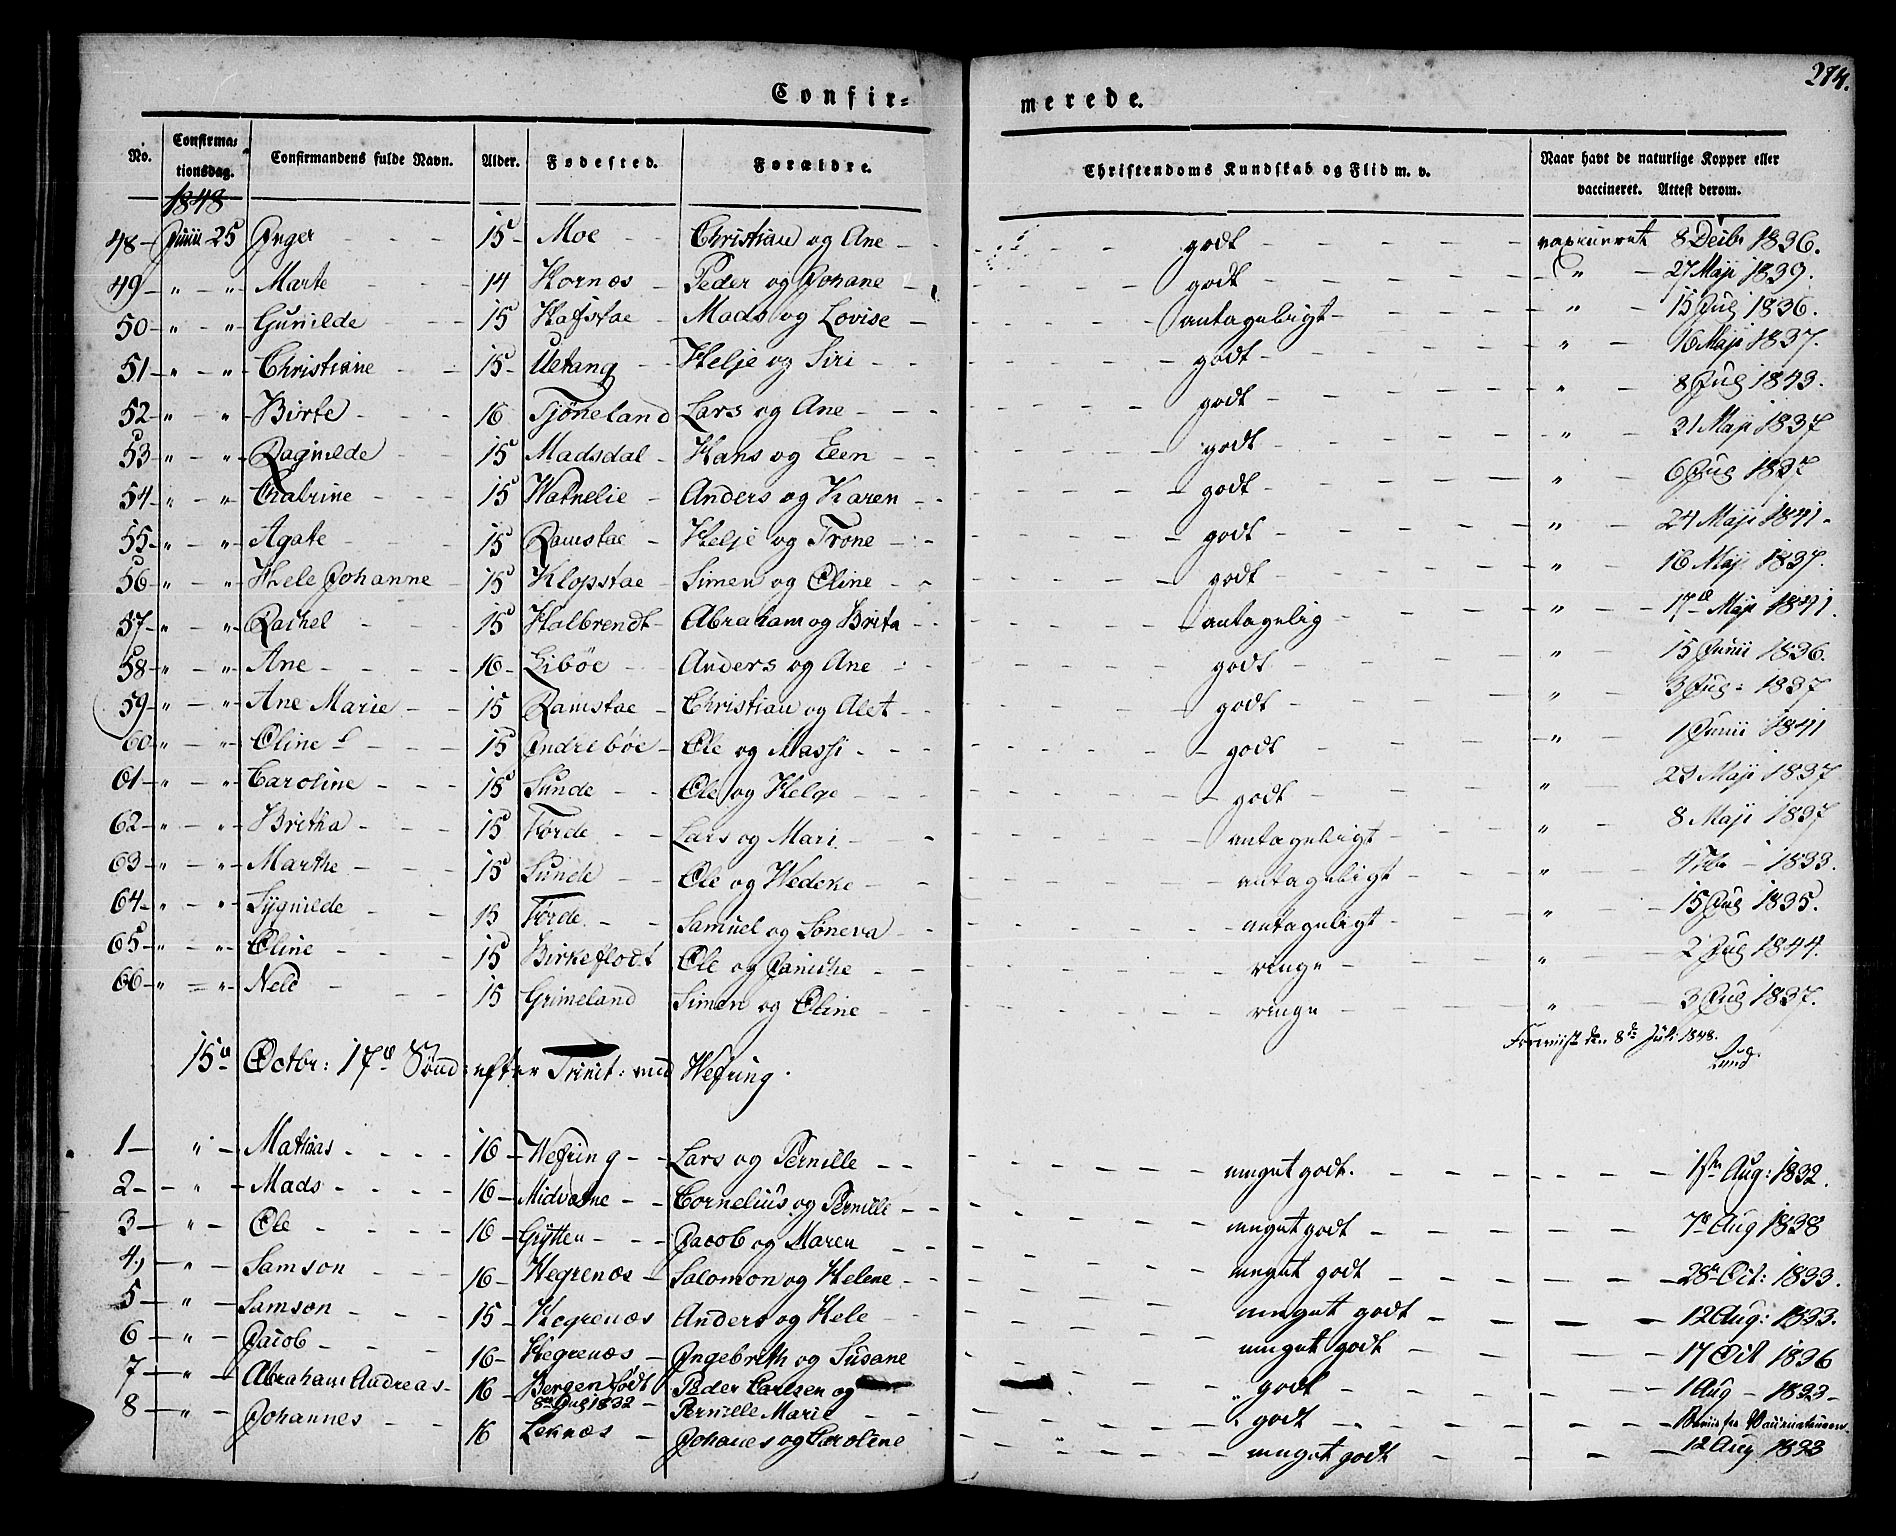 274.
Confir=
merede.
No. Confirma= tionsdag. Confirmandens fulde Navn. Alder. Fødested. Forældre. Christendoms Kundskab og Flid m. v. Naar havt de naturlige Kopper eller vaccineret. Attest derom.
1848
48 Junii 25 Inger 15 Moe Christian og Ane godt vaxineret 8 Decbr 1836.
49 " " Marte 14 Hornæs Peder og Johane godt " 27 Maji 1839.
50 " " Gunilde 15 Hafstae Mads og Lovise antageligt " 15 Julj 1836.
51 " " Christiane 15 Uetang Helje og Siri godt " 16 Maji 1837.
52 " " Birte 16 Tjöneland Lars og Ane godt " 8 Julj 1843.
53 " " Ragnilde 15 Madsdal Hans og Elen godt " 31 Maji 1837
54 " " Chatrine 15 Watnelie Anders og Karen godt " 6 Julj 1837
55 " " Agate 15 Ramstae Helje og Trone godt " 24 Maji 1841.
56 " " Hele Johanne 15 Klopstae Simen og Oline godt " 16 Maji 1837.
57 " " Rachel 15 Halbrendt Abraham og Brita antagelig " 17de Maji 1841.
58 " " Ane 16 Libøe Anders og Ane godt " 15 Junii 1836.
59 " " Ane Marie 15 Ramstae Christian og Alet godt " 3 Julj 1837
60 " " Oline 15 Indrebøe Ole og Massi godt " 1 Junii 1841
61 " " Caroline 15 Sunde Ole og Helge godt " 23 Maji 1837
62 " " Britha 15 Förde Lars og Mari antageligt " 8 Maji 1837
63 " " Marthe 15 Sunde Ole og Hedeke antageligt " 1833.
64 " " Sygnilde 15 Förde Samuel og Söneva antageligt " 15 Julj 1835.
65 " " Oline 15 Birkeflodt Ole og Janiche ringe " 2 Julj 1844.
66 " " Nele 15 Grimeland Simen og Oline ringe " 3 Julj 1837.
den 8de Juli 1848.
15de Octbr: 17de Sönd: efter Trinit: ved Wefring.
1 " Mathias 16 Wefring Lars og Pernille meget godt. 1ste Aug: 1832.
2 " Mads 16 Midvatne Cornelius og Pernille meget godt 7de Aug 1838
3 " Ole 16 Gytten Jacob og Maren meget godt 28de Oct: 1833.
4, " Samson 16 Hegrenæs Salomon og Helene meget godt 12 Aug: 1833.
5 " Samson 15 Hegrenæs Anders og Hele meget godt 17 Oct 1836
6 " Jacob 16 Hegrenæs Ingebreth og Susane godt 1 Aug 1833
7 " Abraham Andreas 16 Bergen födt 8de Julj 1832 Peder Carlsen og Pernille Marie godt
8 " Johannes 16 Leknæs Johanes og Caroline meget godt 12 Aug 1833